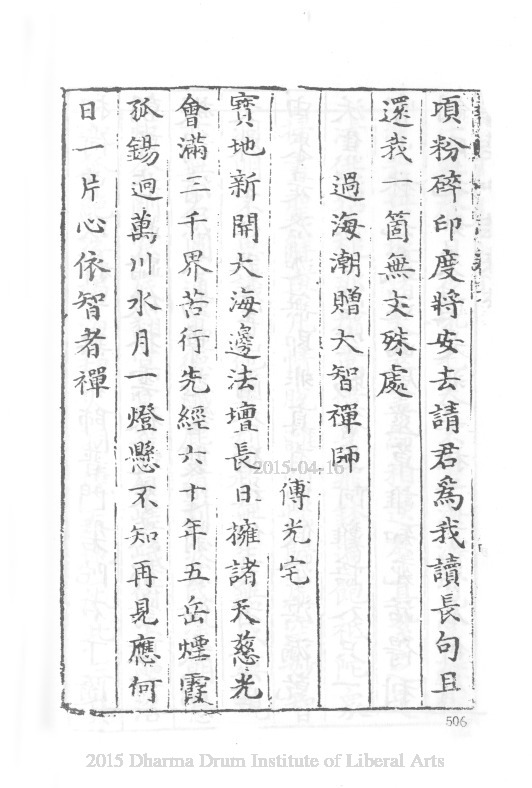 頃粉碎印度將安去請君爲我讀長句且
還我一箇無文殊處
過海潮贈大智禪師
傅光宅
寶地新開大海邊法壇長日擁諸天慈光
會滿三千界苦行先經六十年五岳煙霞
孤錫逈萬川水月一燈懸不知再見應何
日一片心依智者禪
2015-04-16
506
2015 Dharma Drum Institute of Liberal Arts